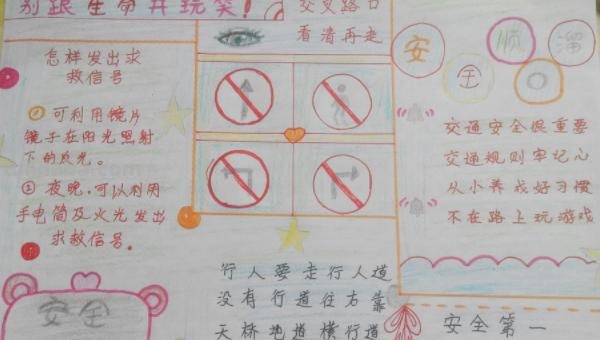 别跟生命开玩笑!
怎样发出求
救信号
① 可利用镜片
镜子在阳光照射
下的反光。
② 夜晚,可以利用
手电筒及火光发出
求救信号。
安全
交叉路口
看清再走
行人要走行人道
没有行道往右靠
天桥地道横行道
安
全
顺
溜
交通安全很重要
交通规则牢记心
从小养成好习惯
不在路上玩游戏
安全第一